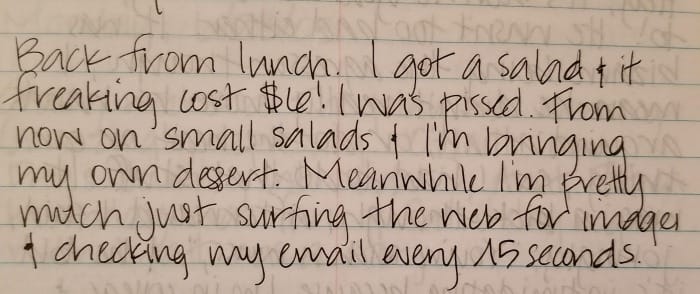 Back from lunch. I got a salad & it
freaking cost $6! I was pissed. From
now on small salads & I'm bringing
my own desert. Meanwhile I'm pretty
much just surfing the web for images
& checking my email every 15 seconds.